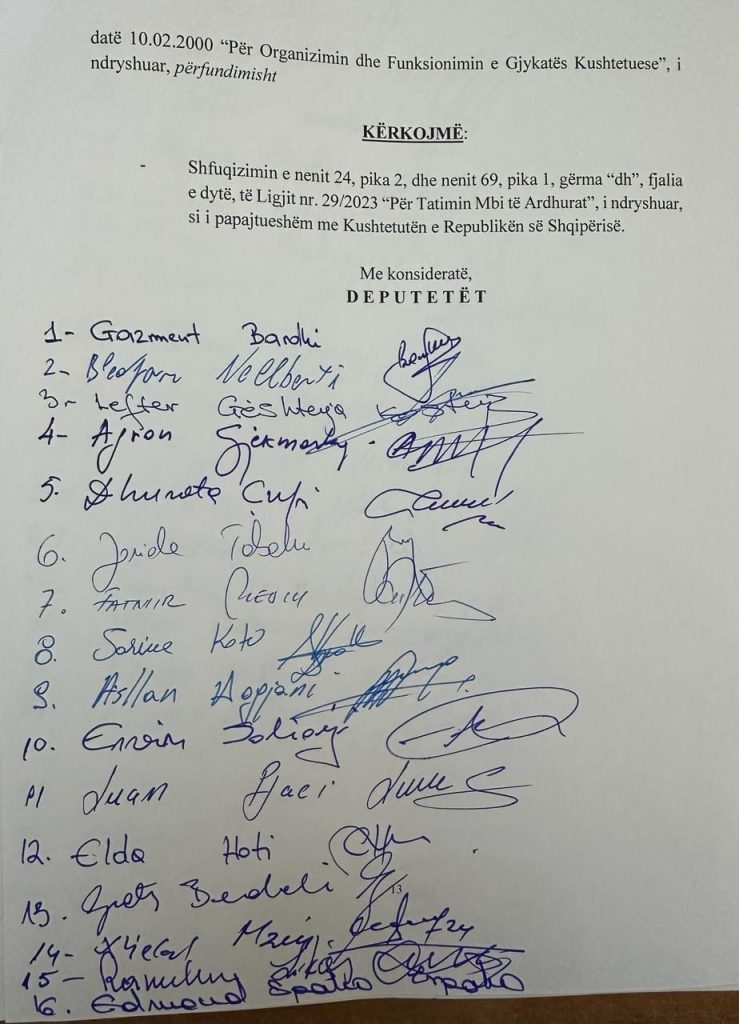 datë 10.02.2000 “Për Organizimin dhe Funksionimin e Gjykatës Kushtetuese”, i
ndryshuar, përfundimisht
KËRKOJMË:
- Shfuqizimin e nenit 24, pika 2, dhe nenit 69, pika 1, gërma “dh”, fjalia
e dytë, të Ligjit nr. 29/2023 “Për Tatimin Mbi të Ardhurat”, i ndryshuar,
si i papajtueshëm me Kushtetutën e Republikën së Shqipërisë.
Me konsideratë,
DEPUTETËT
1- Gazment Bardhi
2-
3- Lefter Gështenja
4- Agron Gjekmarkaj
5. Dhurata Çupi
6. Jorida Tabaku
7. FATMIR Mediu
8. Sorina Koti
9. Asllan Dogjani
10. Ervin Salianji
11 Luan
12. Elda Hoti
13.
13
14-
15-
16. Edmond Spaho Spaho